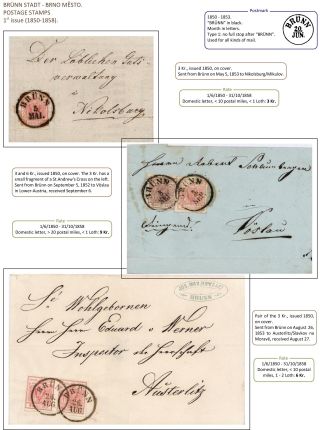 BRÜNN STADT - BRNO MĚSTO.
POSTAGE STAMPS
1st issue (1850-1858).
Postmark
1850 - 1853.
"BRÜNN" in black.
Month in letters.
Type 1: no full stop after "BRÜNN".
Used for all kinds of mail.
BRÜNN
20.
JUN.
3 Kr., issued 1850, on cover.
Sent from Brünn on May 5, 1853 to Nikolsburg/Mikulov.
Rate
1/6/1850 - 31/10/1858
Domestic letter, < 10 postal miles, < 1 Loth: 3 Kr.
Der Löblichen Guts-
verwaltung
zu
Nikolsburg
BRÜNN
5.
MAI.
3 and 6 Kr., issued 1850, on cover. The 3 Kr. has a
small fragment of a St Andrew's Cross on the left.
Sent from Brünn on September 5, 1852 to Vöslau
in Lower-Austria, received September 6.
Rate
1/6/1850 - 31/10/1858
Domestic letter, > 20 postal miles, < 1 Loth: 9 Kr.
Herrn Robert
BRÜNN
BRÜNN
Vöslau
Pair of the 3 Kr., issued 1850,
on cover.
Sent from Brünn on August 26,
1853 to Austerlitz/Slavkov na
Moravě, received August 27.
Rate
1/6/1850 - 31/10/1858
Domestic letter, < 10 postal
miles, 1 - 2 Loth: 6 Kr.
Sr Wohlgebornen
Herrn Herrn Eduard v Werner
Inspector der Herrschaft
Austerlitz
BRÜNN
26.
AUG.
BRÜNN
26.
AUG.